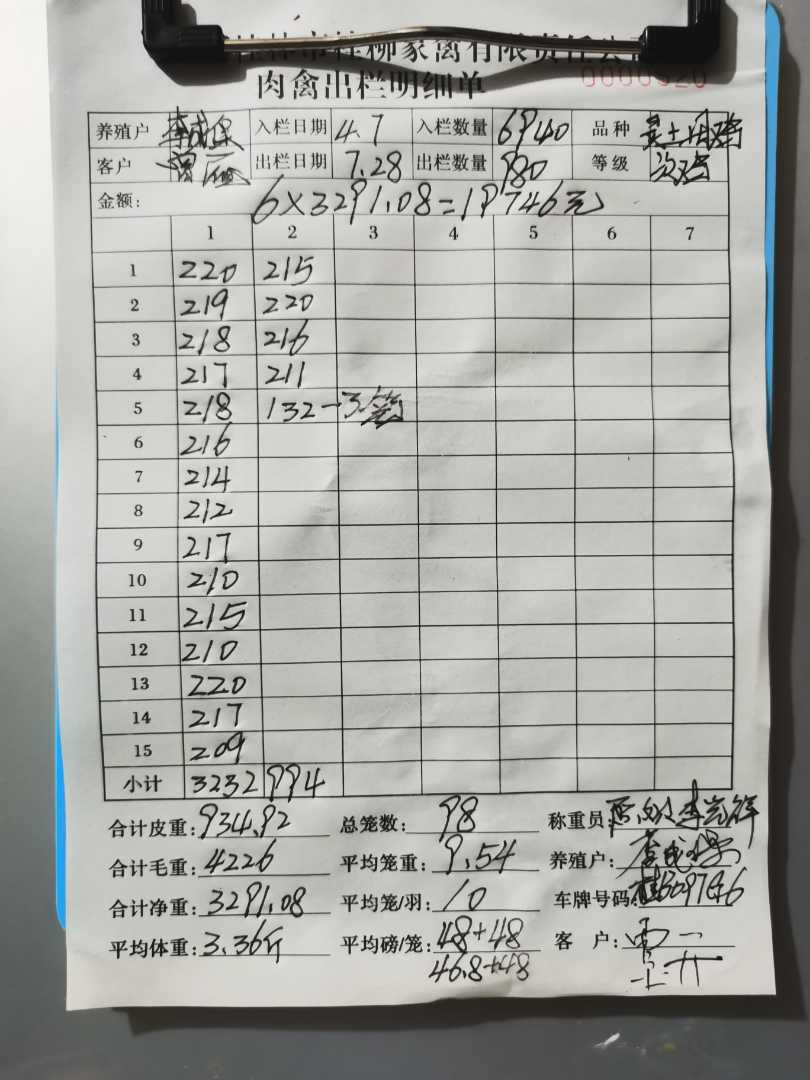 桂林市桂柳家禽有限责任公司
肉禽出栏明细单 0000520
养殖户 李成保 入栏日期 4.7 入栏数量 6940 品种
客户 出栏日期 7.28 出栏数量 980 等级 次鸡
金额: 6×3291.08=19746元
1 2 3 4 5 6 7
1 220 215
2 219 220
3 218 216
4 217 211
5 218 132-3笼
6 216
7 214
8 212
9 217
10 210
11 215
12 210
13 220
14 217
15 209
小计 3232 994
合计皮重: 934.92 总笼数: 98 称重员:
合计毛重: 4226 平均笼重: 9.54 养殖户:
合计净重: 3291.08 平均笼/羽: 10 车牌号码:
平均体重: 3.36斤 平均磅/笼: 48+48 客 户:
46.8+48